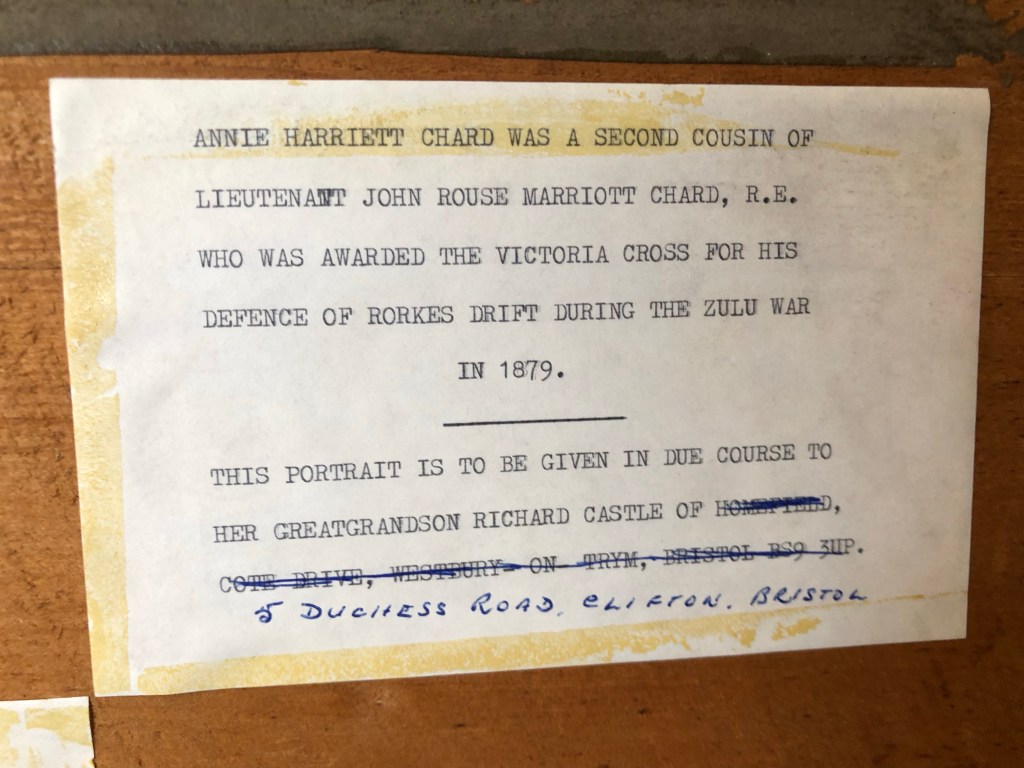 ANNIE HARRIETT CHARD WAS A SECOND COUSIN OF
LIEUTENANT JOHN ROUSE MARRIOTT CHARD, R.E.
WHO WAS AWARDED THE VICTORIA CROSS FOR HIS
DEFENCE OF RORKES DRIFT DURING THE ZULU WAR
IN 1879.
THIS PORTRAIT IS TO BE GIVEN IN DUE COURSE TO
HER GREATGRANDSON RICHARD CASTLE OF HOMEFIELD,
COTE DRIVE, WESTBURY ON TRYM, BRISTOL BS9 3UP.
5 DUCHESS ROAD, CLIFTON. BRISTOL